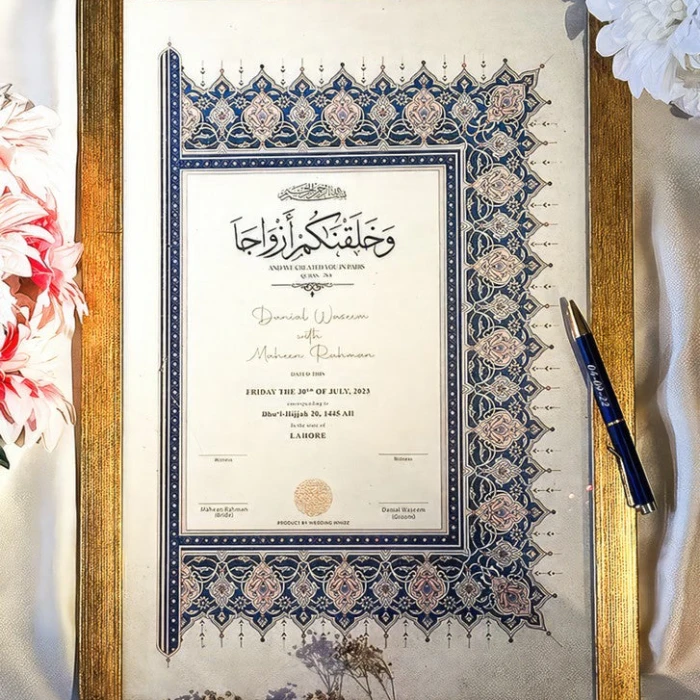 بسم الله الرحمن الرحيم
وَخَلَقْنَٰكُمْ أَزْوَاجًا
AND WE CREATED YOU IN PAIRS
QURAN 78:8
Danial Waseem
with
Maheen Rahman
DATED THIS
FRIDAY THE 30TH OF JULY, 2023
corresponding to
Dhu'l-Hijjah 20, 1445 AH
In the state of
LAHORE
Witness
Witness
Maheen Rahman
(Bride)
Danial Waseem
(Groom)
PRODUCT BY WEDDING WHIZZ
04-09-22